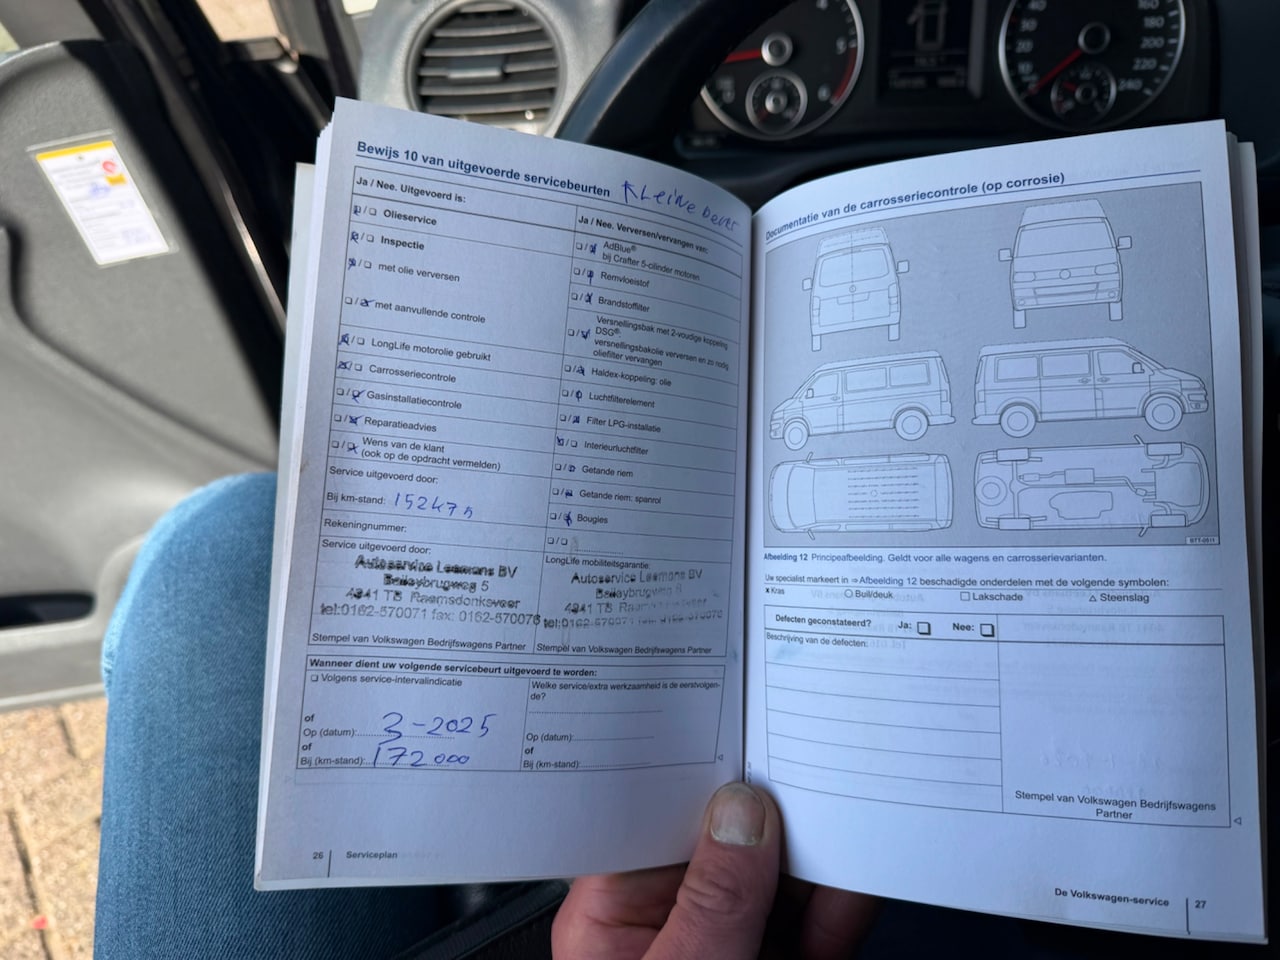 Bewijs 10 van uitgevoerde servicebeurten
Kleine beurt
Ja / Nee. Uitgevoerd is:
Olieservice
Inspectie
met olie verversen
met aanvullende controle
LongLife motorolie gebruikt
Carrosseriecontrole
Gasinstallatiecontrole
Reparatieadvies
Wens van de klant
(ook op de opdracht vermelden)
Service uitgevoerd door:
Bij km-stand:
Rekeningnummer:
Service uitgevoerd door:
Autoservice Leemans BV
4941 TB Raamsdonksveer
tel:0162-570071 fax: 0162-570076
Stempel van Volkswagen Bedrijfswagens Partner
Ja / Nee. Verversen/vervangen van:
AdBlue®
bij Crafter 5-cilinder motoren
Remvloeistof
Brandstoffilter
Versnellingsbak met 2-voudige koppeling
DSG®:
versnellingsbakolie verversen en zo nodig
oliefilter vervangen
Haldex-koppeling: olie
Luchtfilterelement
Filter LPG-installatie
Interieurluchtfilter
Getande riem
Getande riem: spanrol
Bougies
LongLife mobiliteitsgarantie:
Autoservice Leemans BV
Stempel van Volkswagen Bedrijfswagens Partner
Wanneer dient uw volgende servicebeurt uitgevoerd te worden:
Volgens service-intervalindicatie
of
Op (datum): 3-2025
of
Bij (km-stand): 172000
Welke service/extra werkzaamheid is de eerstvolgen-
de?
Op (datum):
of
Bij (km-stand):
26 Serviceplan
Documentatie van de carrosseriecontrole (op corrosie)
BTT-0511
Afbeelding 12 Principeafbeelding. Geldt voor alle wagens en carrosserievarianten.
Uw specialist markeert in ⇒ Afbeelding 12 beschadigde onderdelen met de volgende symbolen:
x Kras
Buil/deuk
Lakschade
Steenslag
Defecten geconstateerd? Ja: Nee:
Beschrijving van de defecten:
Stempel van Volkswagen Bedrijfswagens
Partner
De Volkswagen-service 27
160
180
200
220
240